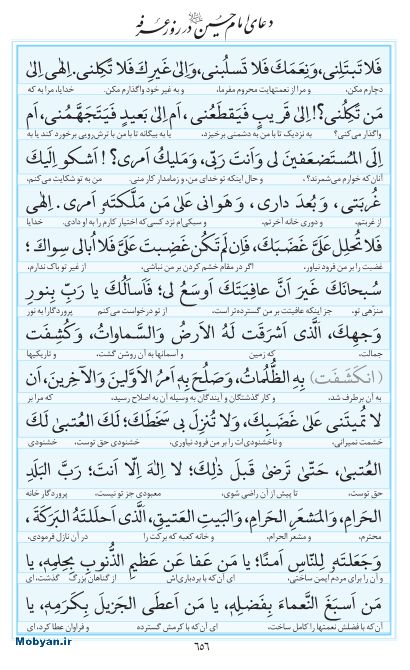 دعای امام حسین علیه‌السلام در روز عرفه
فَلا تَبتَلِنی، وَنِعَمَكَ فَلا تَسلُبنی، وَاِلیٰ غَیرِكَ فَلا تَكِلنی. اِلٰهی اِلیٰ
دچارم مکن، و مرا از نعمتهایت محروم مفرما، و به غیر خود واگذارم مکن. خدایا، مرا به که
مَن تَكِلُنی؟! اِلیٰ قَریبٍ فَیَقطَعُنی، اَم اِلیٰ بَعیدٍ فَیَتَجَهَّمُنی، اَم
واگذار می‌کنی؟ به نزدیک تا با من به دشمنی برخیزد، یا به بیگانه تا با من با ترش‌رویی برخورد کند یا به
اِلَی المُستَضعَفینَ لی وَاَنتَ رَبّی، وَمَلیكُ اَمری؟! اَشكو اِلَیكَ
آنان که خوارم می‌شمرند؟، و حال اینکه تو خدای من، و زمامدار کار منی. من به تو شکایت می‌کنم،
غُربَتی، وَبُعدَ داری، وَهَوانی عَلیٰ مَن مَلَّكتَهٗ اَمری. اِلٰهی
از غربتم، و دوری خانه آخرتم، و سبکی‌ام نزد کسی که اختیار کارم را به او دادی. خدایا
فَلا تُحلِل عَلَیَّ غَضَبَكَ، فَاِن لَم تَكُن غَضِبتَ عَلَیَّ فَلا اُبالی سِواكَ؛
غضبت را بر من فرود نیاور، اگر در مقام خشم کردن بر من نباشی، از غیر تو باک ندارم،
سُبحانَكَ غَیرَ اَنَّ عافِیَتَكَ اَوسَعُ لی؛ فَاَسأَلُكَ یا رَبِّ بِنورِ
منزهی تو، جز اینکه عافیتت بر من گسترده‌تر است، از تو درخواست می‌کنم پروردگارا به نور
وَجهِكَ، الَّذی اَشرَقَت لَهُ الاَرضُ وَالسَّماواتُ، وَكُشِفَت
جمالت، که زمین و آسمانها به آن روشن گشت، و تاریکیها
(انكَشَفَت) بِهِ الظُّلُماتُ، وَصَلُحَ بِهٖ اَمرُ الاَوَّلینَ وَالآخِرینَ، اَن
به آن برطرف شد، و کار گذشتگان و آیندگان به وسیله آن به اصلاح رسید، که مرا بر
لا تُمیتَنی عَلیٰ غَضَبِكَ، وَلا تُنزِلَ بی سَخَطَكَ؛ لَكَ العُتبیٰ لَكَ
خشمت نمیرانی، و ناخشنودی‌ات را بر من فرود نیاوری، خشنودی حق توست، خشنودی
العُتبیٰ، حَتّیٰ تَرضیٰ قَبلَ ذٰلِكَ؛ لا اِلٰهَ اِلّا اَنتَ؛ رَبَّ البَلَدِ
حق توست، تا پیش از آن راضی شوی، معبودی جز تو نیست، پروردگار خانه
الحَرامِ، وَالمَشعَرِ الحَرامِ، وَالبَیتِ العَتیقِ، الَّذی اَحلَلتَهُ البَرَكَةَ،
محترم، و مشعر الحرام، و خانه کعبه که برکت را در آن نازل فرمودی،
وَجَعَلتَهٗ لِلنّاسِ اَمنًا؛ یا مَن عَفا عَن عَظیمِ الذُّنوبِ بِحِلمِهٖ، یا
و آن را برای مردم ایمن ساختی، ای آن که با بردباری‌اش از گناهان بزرگ گذشت، ای
مَن اَسبَغَ النَّعماءَ بِفَضلِهٖ، یا مَن اَعطَی الجَزیلَ بِكَرَمِهٖ، یا
آن که با فضلش نعمتها را کامل ساخت، ای آن که با کرمش گسترده و فراوان عطا کرد، ای
Mobyan.ir
٦٥٦